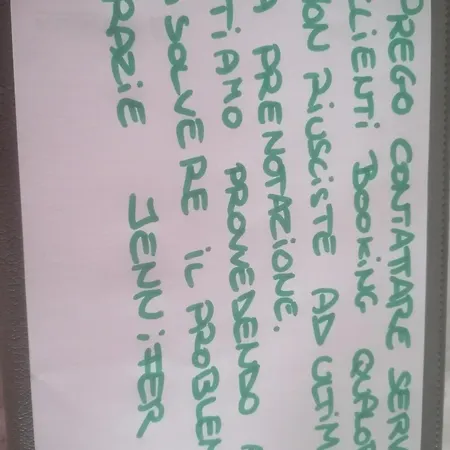 PREGO CONTATTARE SERV
CLIENTI BOOKING QUALOR
NON RIUSCISTE AD ULTIM
A PRENOTAZIONE.
STIAMO PROVVEDENDO A
RISOLVERE IL PROBLEM
GRAZIE JENNIFER